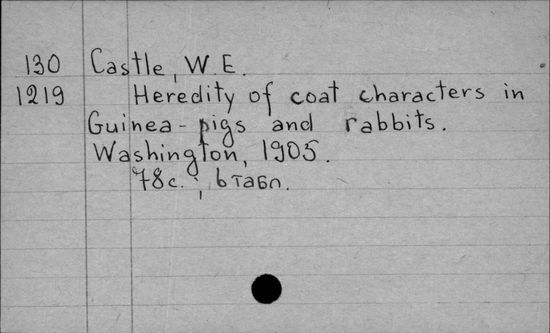 130 Castle, W.E.
1219 Heredity of coat characters in
Guinea-pigs and rabbits.
Washington, 1905.
78 с., 6 табл.